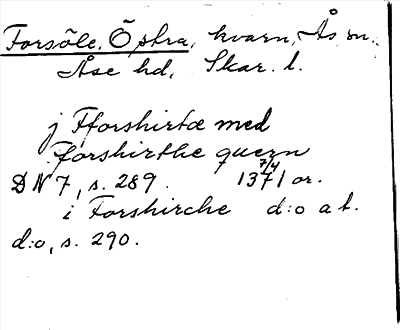 Forsöle, Östra, kvarn, Ås sn.,
Åse hd, Skar. l.
j Fforshirtæ med
fforshirthe quern
DN 7, s. 289. 7/4 1371 or.
i Forshirche d:o a t.
d:o, s. 290.